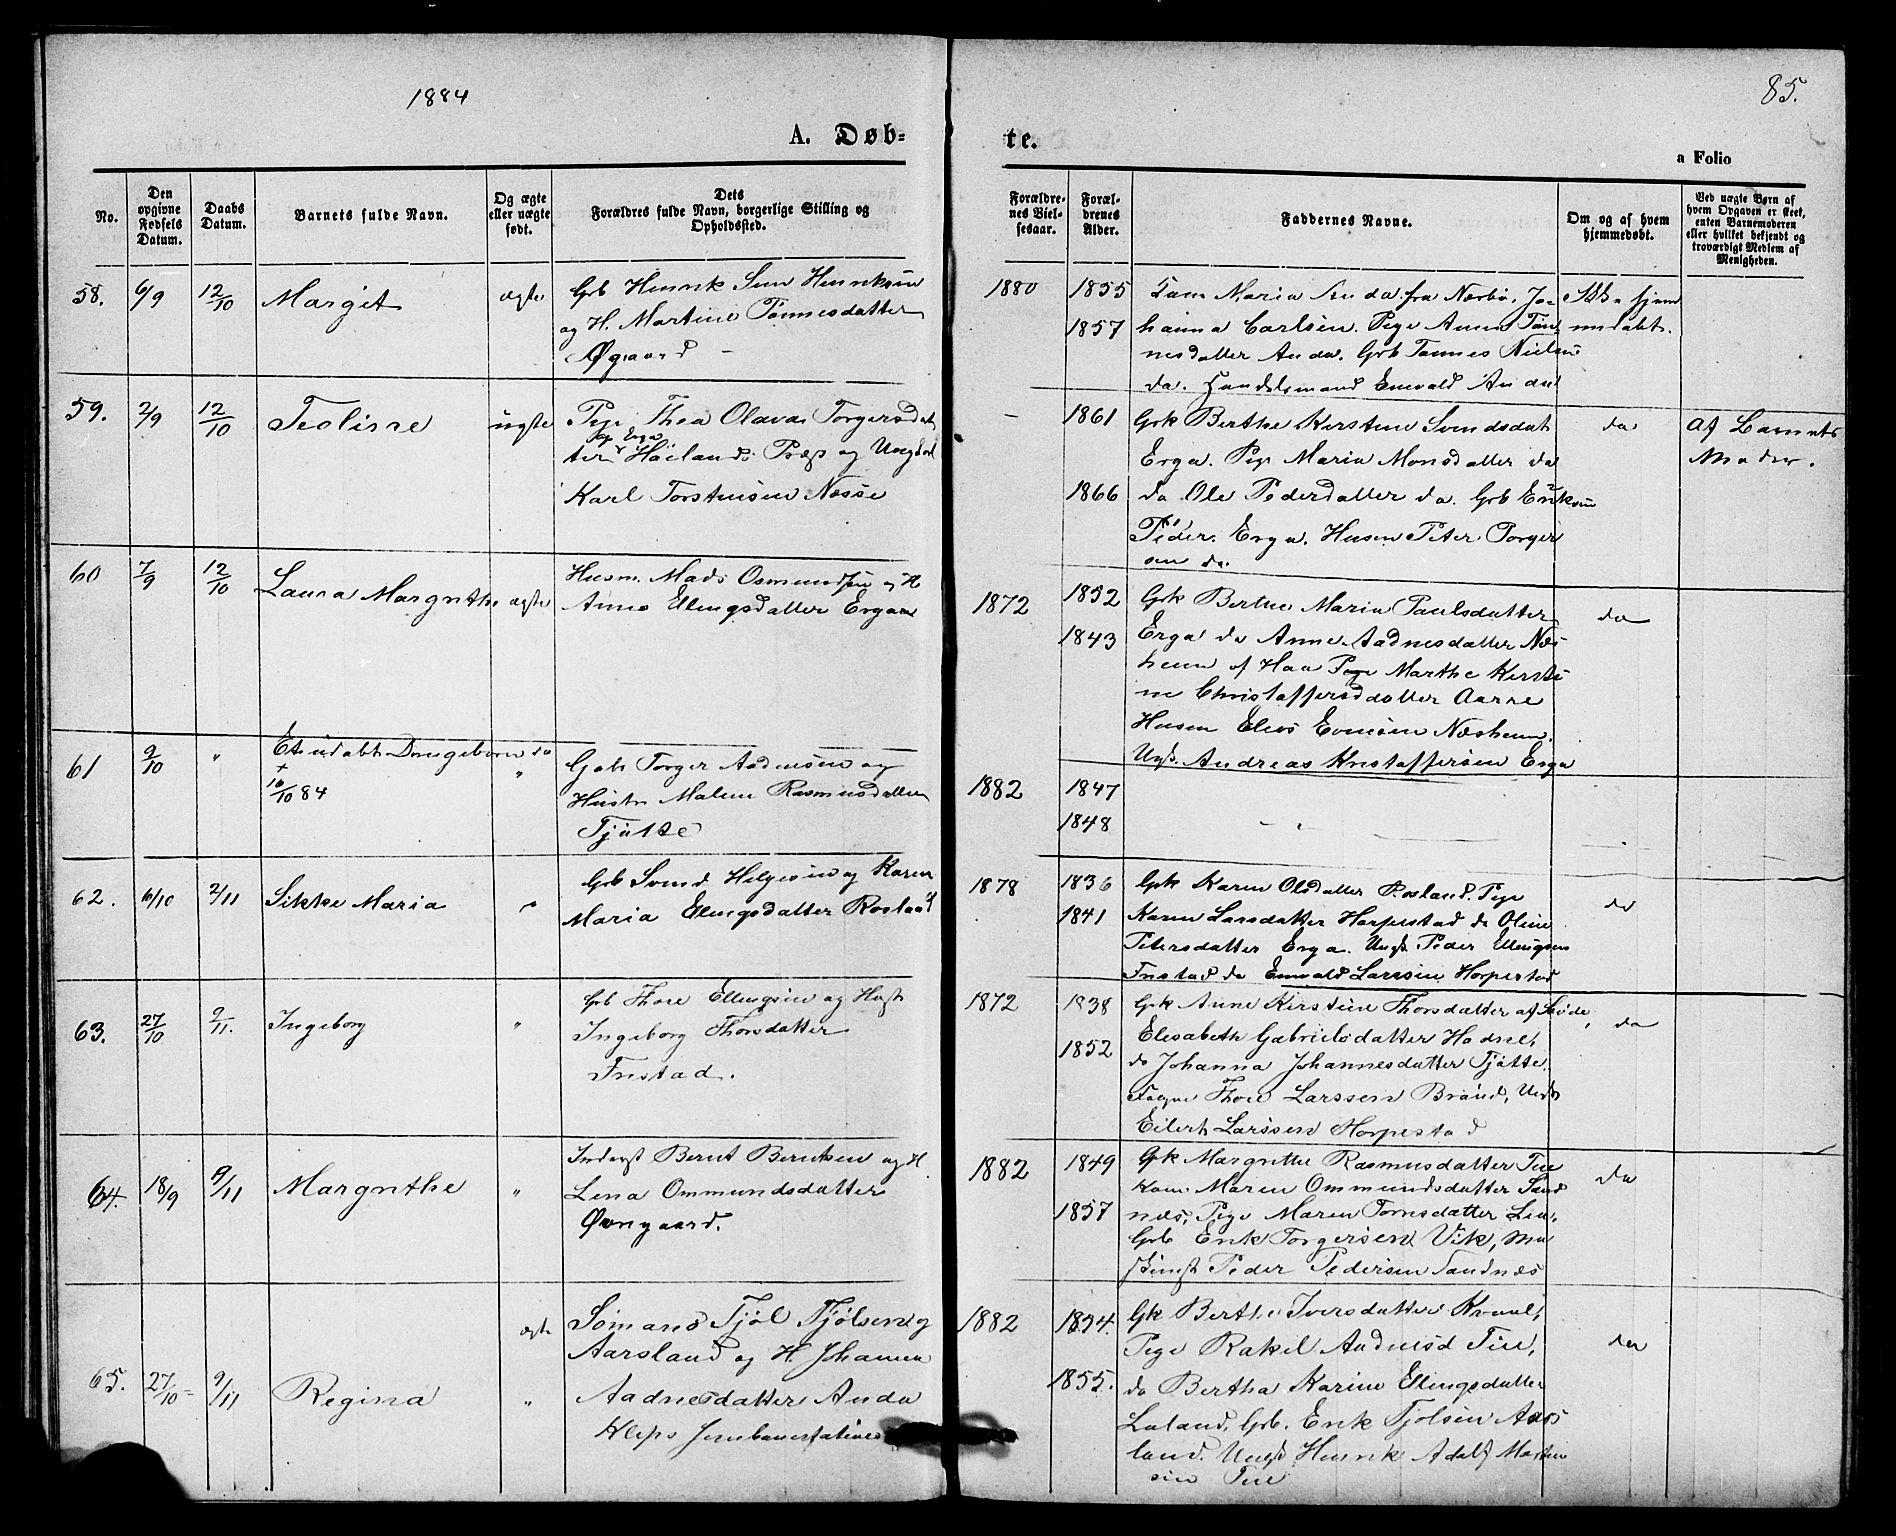 1884
85.
A. Døb-
te.
a Folio
No.
Den
opgivne
Fødsels
Datum.
Daabs
Datum.
Barnets fulde Navn.
Og ægte
eller uægte
født.
Dets
Forældres fulde Navn, borgerlige Stilling og
Opholdssted.
Forældre-
nes Viel-
sesaar.
Foræl-
drenes
Alder.
Faddernes Navne.
Om og af hvem
hjemmedøbt.
Ved uægte Børn af
hvem Opgaven er skeet,
enten Barnemoderen
eller hvilket bekjendt og
troværdigt Medlem af
Menigheden.
58. 6/9 12/10 Margit ægte Gb Henrik Henriksen
og H. Martine Tønnesdatter
Øgaard
1880 1855 Maria Anda fra Nærbø, Jo-
1857 hanna Carlsen. Pige Anna Tøn-
nesdatter Anda. Grb Tønnes Nielsen
da. Handelsmand Enevald Anda
59. 2/9 12/10 Teoline uægte Pige Thea Olava Torgersdat
ter Høiland og Ungkarl
Karl Torstensen Næsse
- 1861 Grk Berthe Kirstine Svendsdat
Erga. Pige Maria Monsdatter da
1866 da Ole Pedersdatter da. Grb Eriksen
Peder Erga. Husm Peter Torger
sen da.
da
Af Barnets
Moder.
60 7/9 12/10 Laura Margrethe ægte Husm. Mads Osmundsen og H
Anne Ellingsdatter Ergaa
1872 1832 Grk Berthe Maria Paulsdatter
1843 Erga da Anne Aadnesdatter Næs
heim af Haa Pige Marthe Kirsti
ne Christoffersdatter Aarre
Husm Elias Evensen Næsheim.
Ungk. Andreas Kristoffersen Erga
da
61 9/10 " Et udøbt Drengebarn da
+
10/10 84
" Gab Torger Aadnesen og
Hustr Malene Rasmusdatter
Tjøtte
1882 1847
1848
62. 6/10 2/11 Sikke Maria " Grb Svend Helgesen og Karen
Maria Ellingsdatter Rosland
1878 1836 Gpk Karen Olsdatter Rosland. Pige
1841 Karen Larsdatter Horpestad da Oline
Petersdatter Erga. Ungk Peder Ellingsen
Fristad da Enevald Larssen Horpestad
da
63. 27/10 2/11. Ingeborg " Grb Thore Ellingsen og Hust
Ingeborg Thorsdatter
Fristad.
1872 1838 Gpk Anne Kirstine Thorsdatter af
1852 Elisabeth Gabrielsdatter Hodne,
da Johanna Johannesdatter Tjøtte.
Thore Larssen Braud, Ungk
Eilert Larssen Horpestad
da
64. 18/9 9/11 Margrethe " Inderst Bernt Berntsen og H.
Lena Ommundsdatter
Øvngaard.
1882 1849 Gpk Margrethe Rasmusdatter Tue
Kone Maren Ommundsdatter Sand
1857 næs, Pige Maren Tønnesdatter Lin,
Grb Erik Torgersen Vik, Ma
skinist Peder Pedersen Sandnæs
da
65. 27/10 9/11 Regina ægte " Sømand Tjøl Tjølsen og
Aarsland og H. Johanna
Aadnesdatter Anda
Klep Jernbanestation
1882 1854. Gpk Berthe Iversdatter Kvaal,
Pige Rakel Aadnesd Tue,
1855. da Bertha Karine Ellingsdatter
Laland, Grb. Erik Tjølsen Aars
land. Ungk Henrik Adolf Morten
sen Tue
da